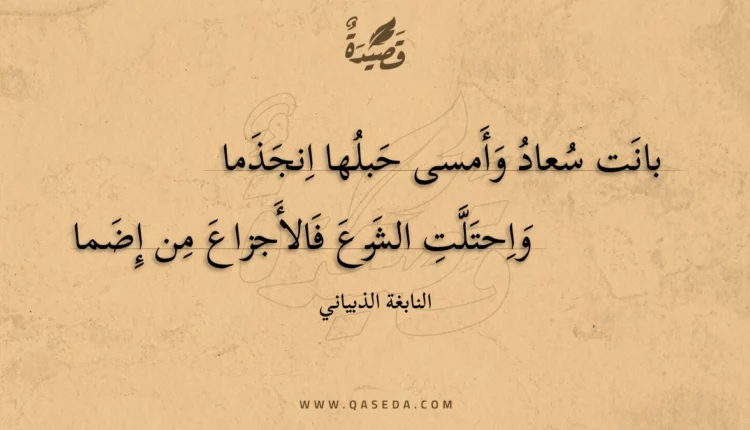 قَصِيْدَةٌ
بانَت سُعادُ وَأَمسى حَبلُها اِنجَذَما
وَاِحتَلَّتِ الشَرعَ فَالأَجزاعَ مِن إِضَما
النابغة الذبياني
WWW.QASEDA.COM